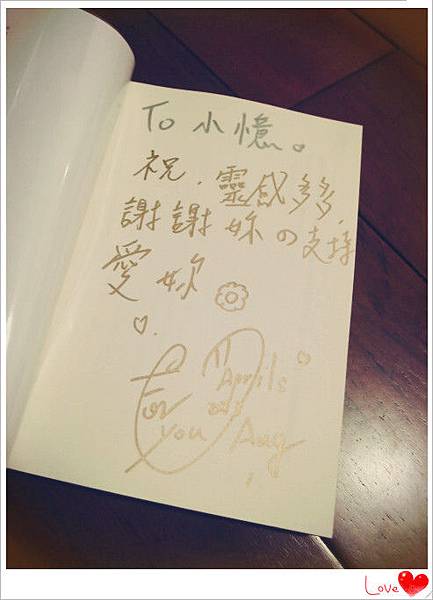 To 小憶。
祝.靈感多多,
謝謝妳の支持
愛妳
for you
April's
Aug
Love